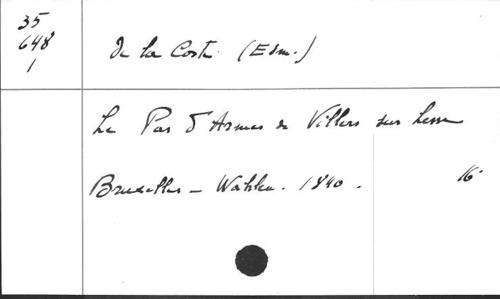 35
648
1
De la Coste. (Edm.)
Le Pas d'Armes de Villers sur Lesse
Bruxelles - Wahlen. 1840.
16°